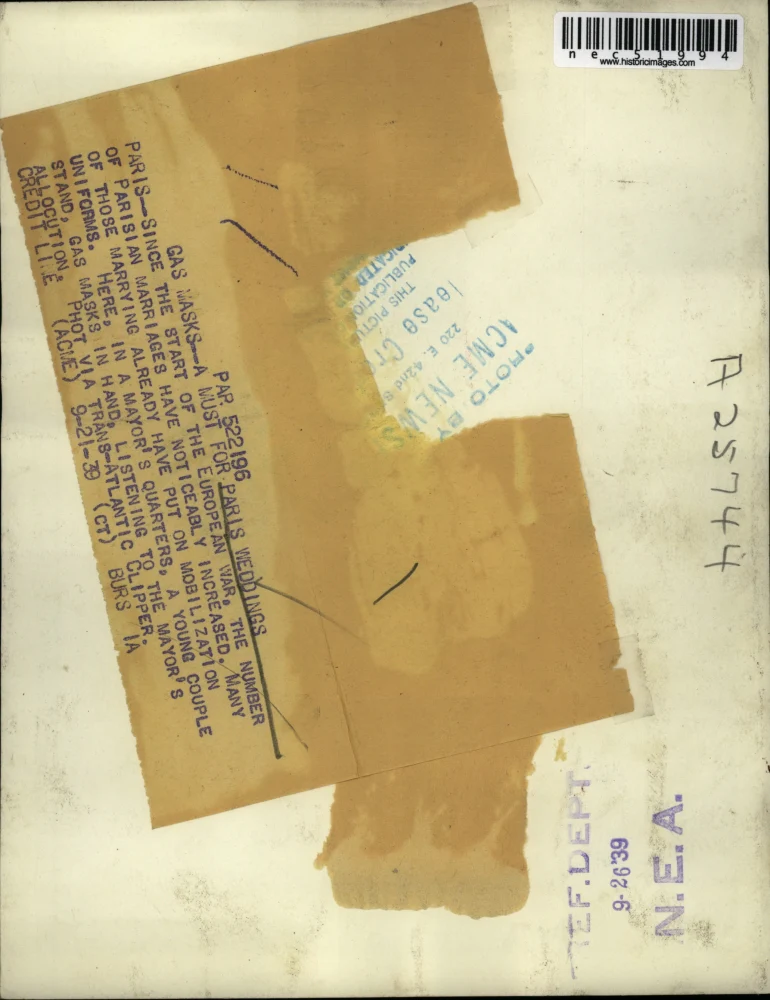 nec51994
www.historicimages.com
PAP 522196
GAS MASKS--A MUST FOR PARIS WEDDINGS
PARIS--SINCE THE START OF THE EUROPEAN WAR, THE NUMBER
OF PARISIAN MARRIAGES HAVE NOTICEABLY INCREASED. MANY
OF THOSE MARRYING ALREADY HAVE PUT ON MOBILIZATION
UNIFORMS. HERE, IN A MAYOR'S QUARTERS, A YOUNG COUPLE
STAND, GAS MASKS IN HAND, LISTENING TO THE MAYOR'S
ALLOCUTION. PHOT VIA TRANS-ATLANTIC CLIPPER.
CREDIT LINE (ACME) 9-21-39 (CT) BURS IA
PHOTO BY
ACME NEWS
220 E. 42nd S
lease Cr
THIS PICTU
PUBLICATIO
A25744
REF.DEPT.
9-26 39
N.E.A.